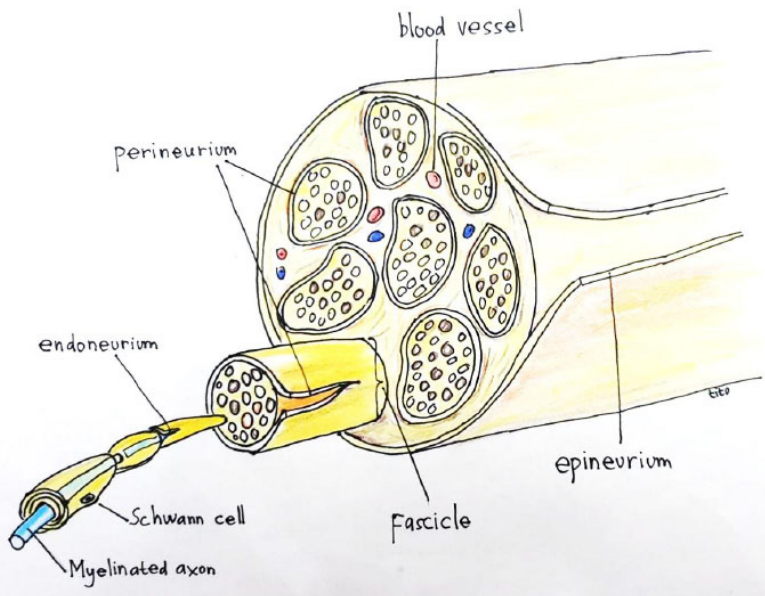 blood vessel
perineurium
endoneurium
tito
epineurium
Schwann cell
Fascicle
Myelinated axon